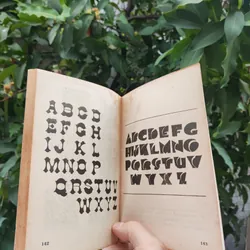 ABCD
EFGH
IJKL
MNOP
QRSTUV
WXYZ
ABCDEFG
HIJKLMNO
PQRSTUV
WXYZ